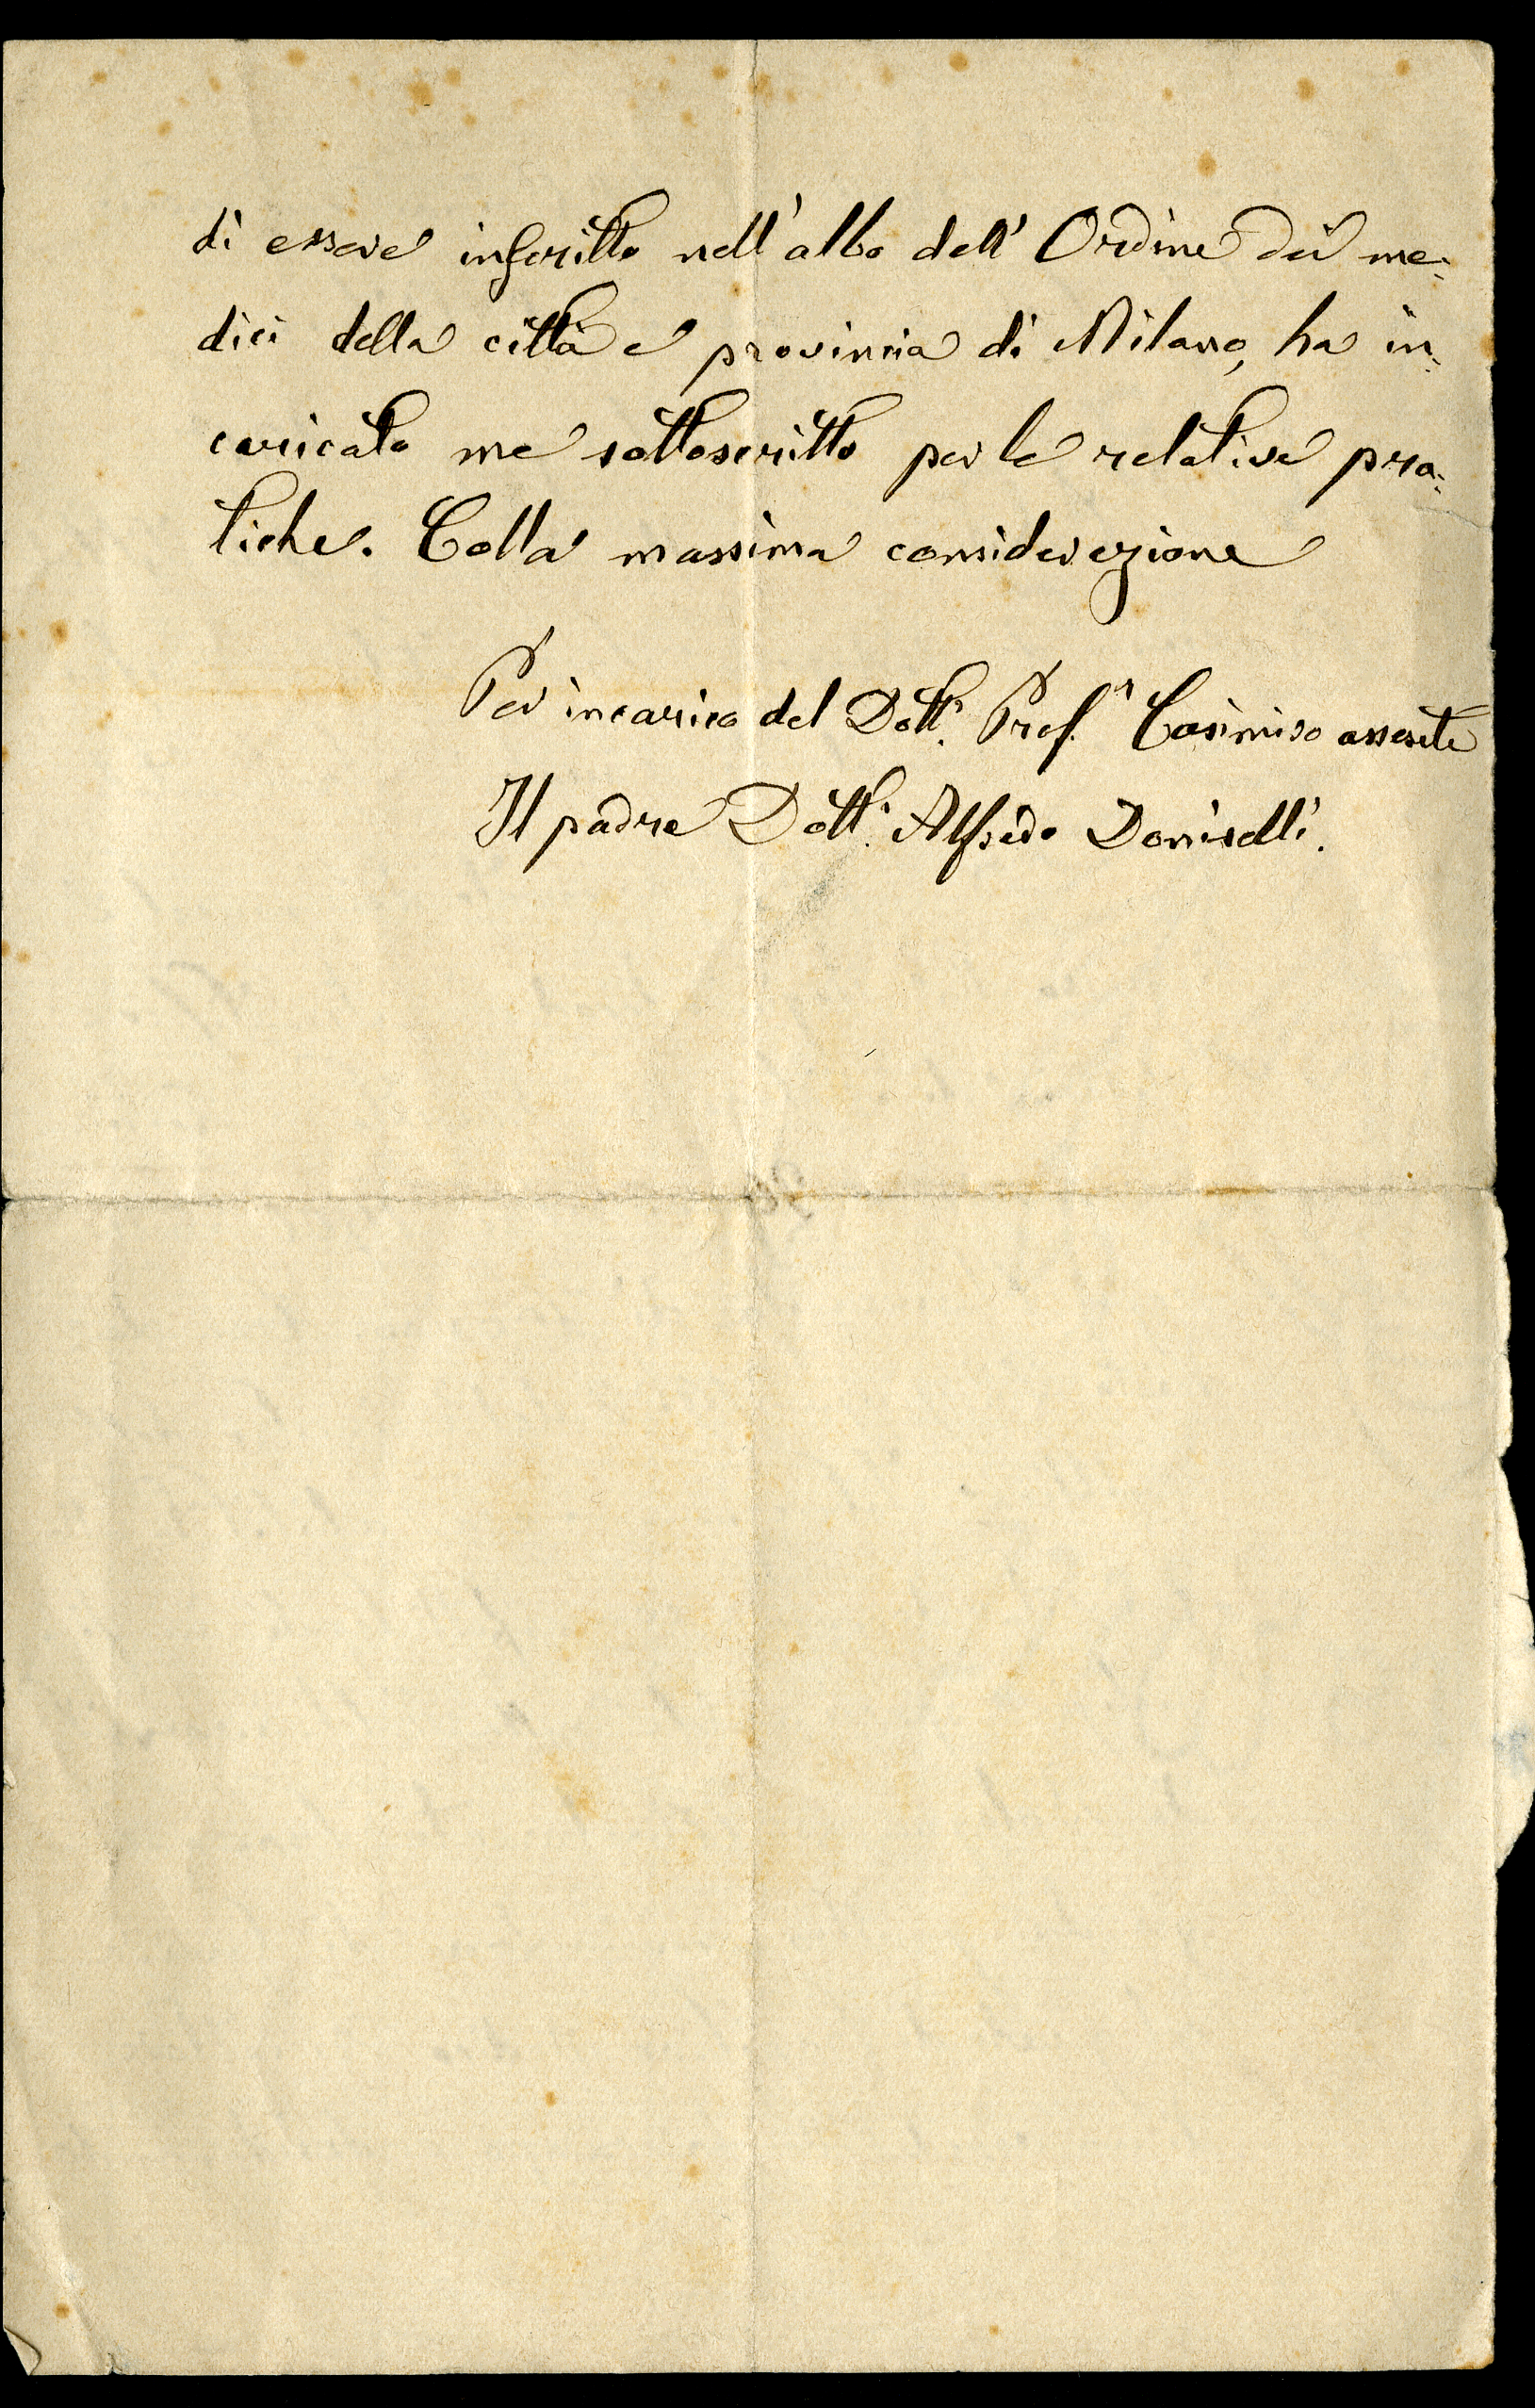 di essere inscritto nell'albo dell'Ordine dei me-
dici della città e provincia di Milano, ha in-
caricato me sottoscritto per le relative pra-
tiche. Colla massima considerazione
Per incarico del Dott. Prof.r Casimiro assente
Il padre Dott. Alfredo Doniselli.